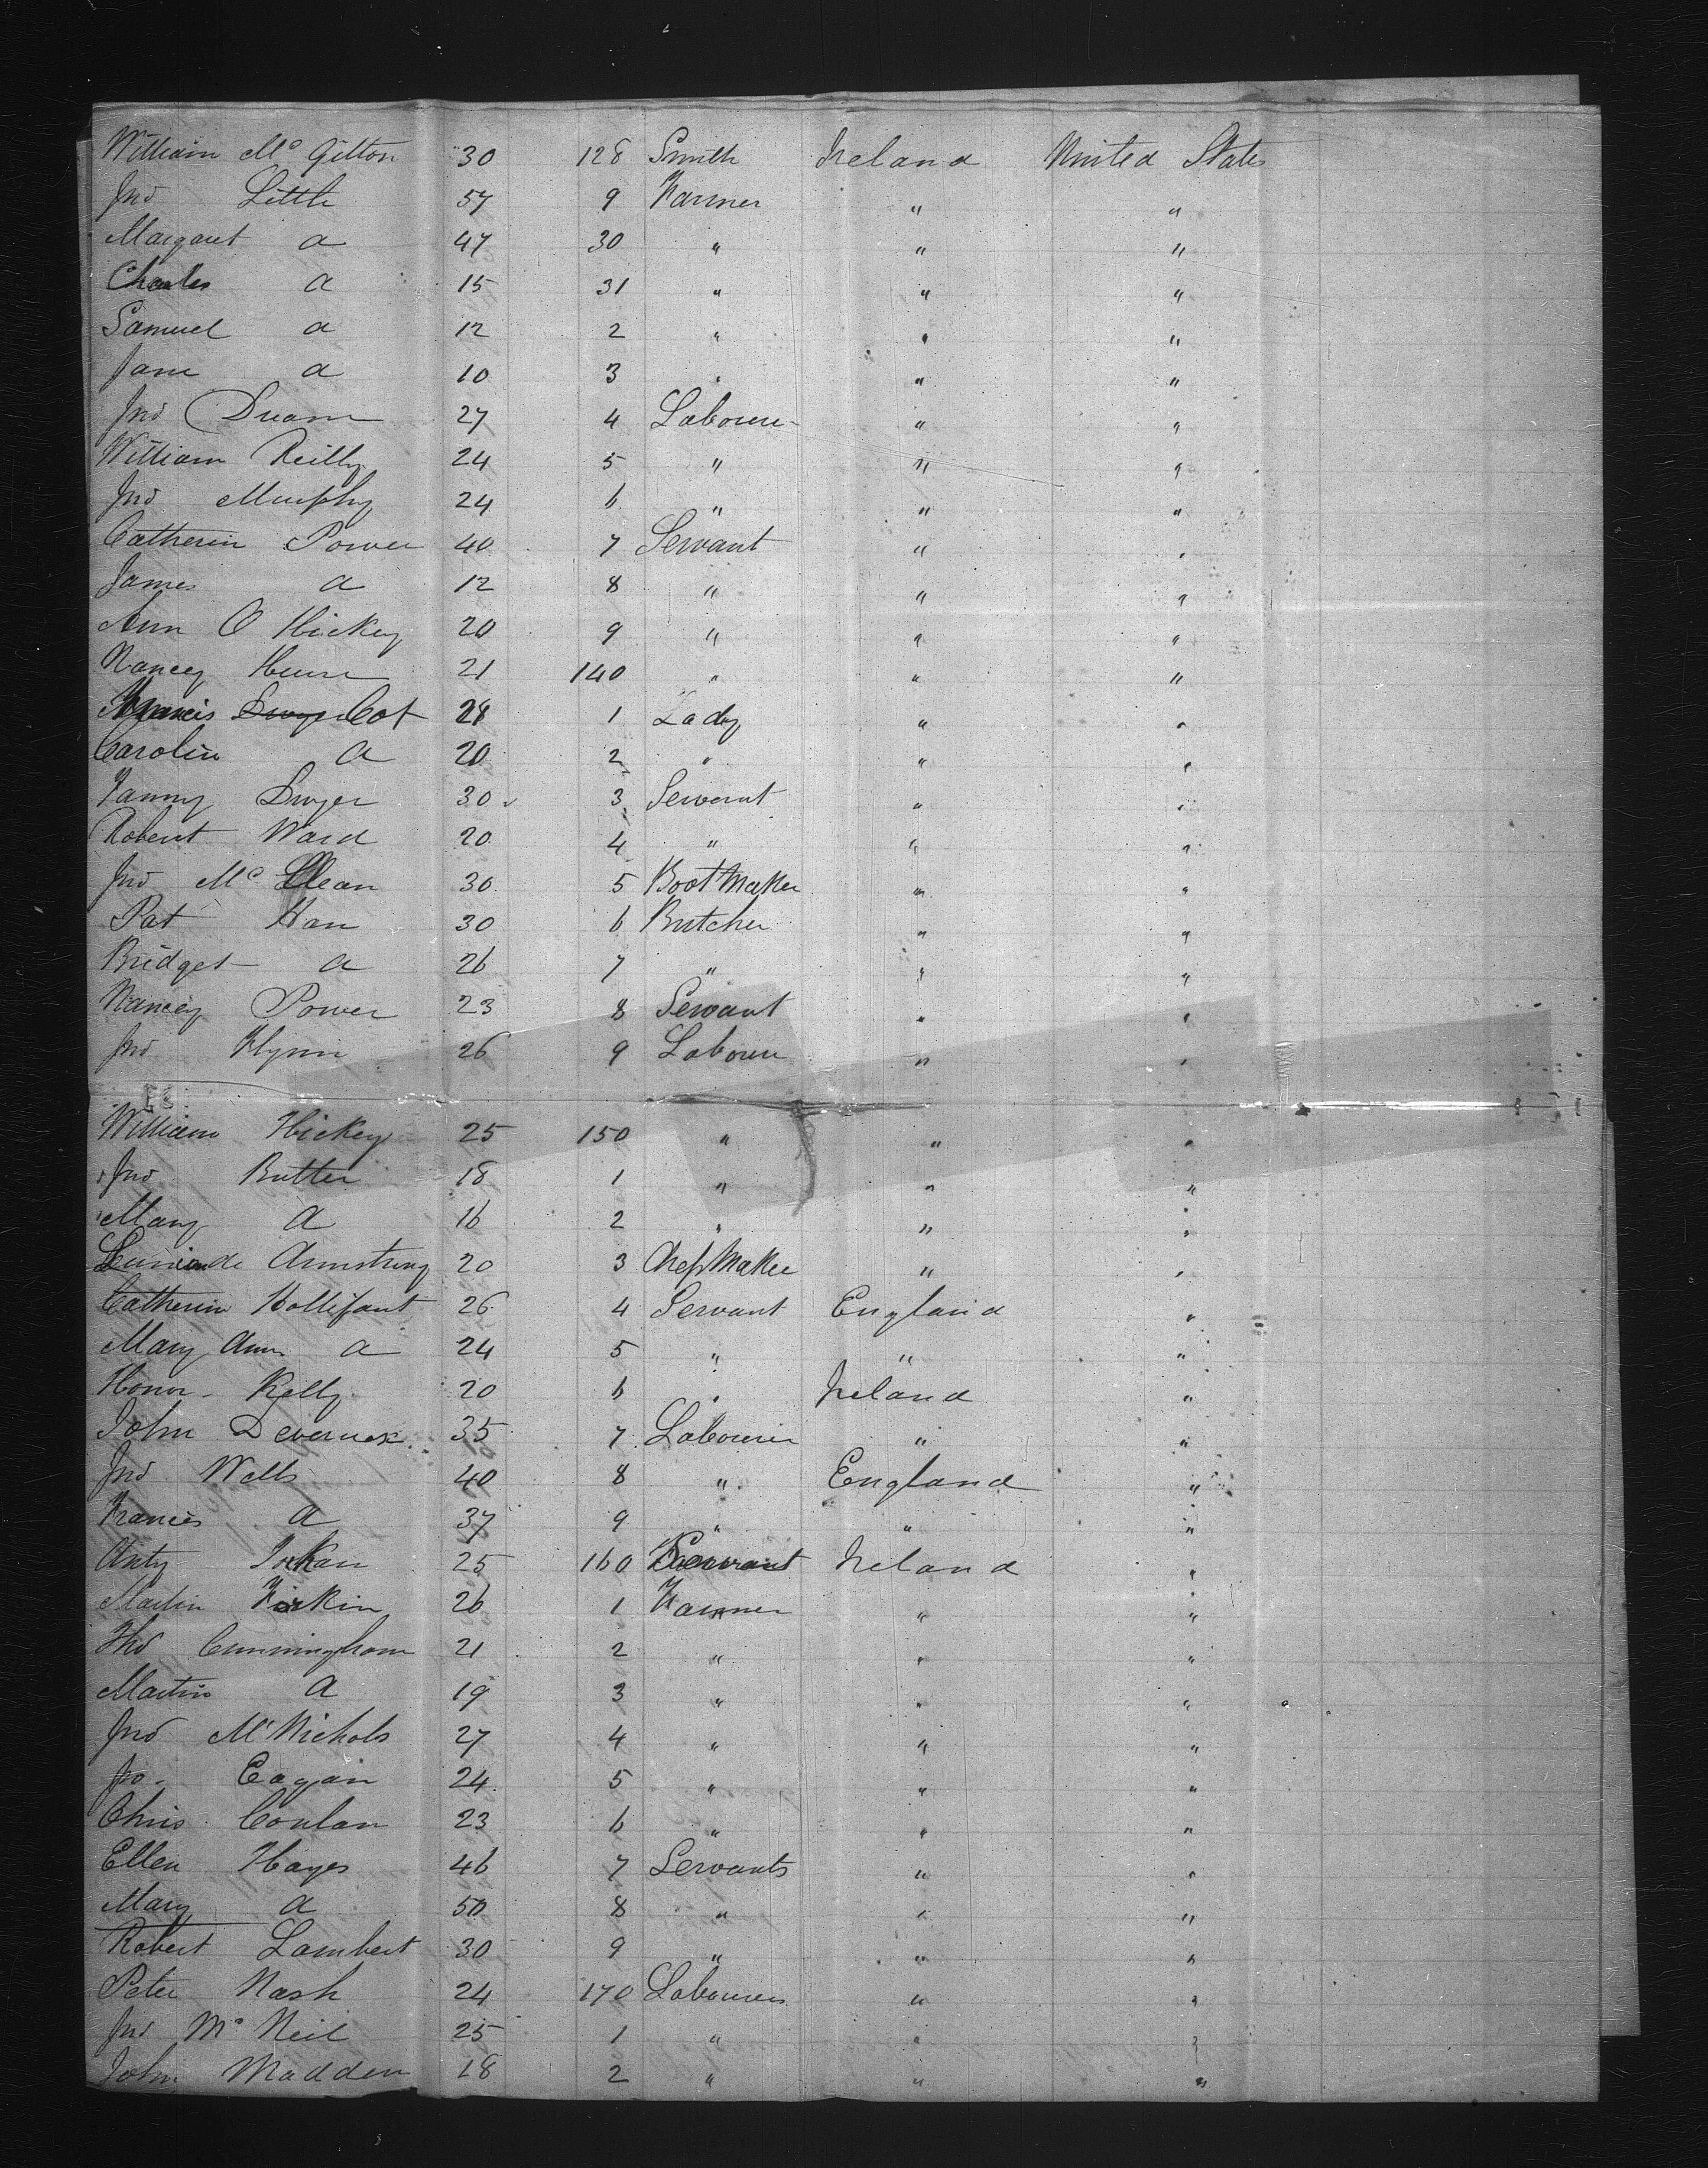 William Mc Gitton 30 128 Smith Ireland United States
Jno Little 57 9 Farmer " "
Margaret a 47 30 " " "
Charles a 15 31 " " "
Samuel a 12 2 " " "
Jane a 10 3 " " "
Jno 27 4 Labourer " "
William Reilly 24 5 " " "
Jno Murphy 24 6 " " "
Catherin Power 40 7 Servant " "
James a 12 8 " " "
Ann O Hickey 20 9 " " "
Nancy 21 140 " " "
Francis Cot 28 1 Lady " "
Carolin a 20 2 " " "
Fanny Dwyer 30 3 Servant " "
Robert Ward 20 4 " " "
Jno Mc Clean 30 5 Boot Maker " "
Pat Han 30 6 Butcher " "
Bridget a 26 7 " " "
Nancy Power 23 8 Servant " "
Jno Flynn 26 9 Labourer " "
William Hickey 25 150 " " "
Jno Butter 18 1 " " "
Mary a 16 2 " " "
Armstrong 20 3 Maker " "
Catherin Hollifant 26 4 Servant England "
Mary Ann a 24 5 " " "
Honor Kelly 20 6 " Ireland "
John Devereux 35 7 Labourer " "
Jno Wells 40 8 " England "
Francis a 37 9 " " "
Anty 25 160 Servant Ireland "
Martin 26 1 Farmer " "
Tho Cunningham 21 2 " " "
Martin a 19 3 " " "
Jno McNichols 27 4 " " "
Jno. Eagan 24 5 " " "
Chris Conlan 23 6 " " "
Ellen Hayes 46 7 Servants " "
Mary a 50 8 " " "
Robert Lambert 30 9 " " "
Peter Nash 24 170 Labourers " "
Jno Mc Neil 25 1 " " "
John Madden 18 2 " " "